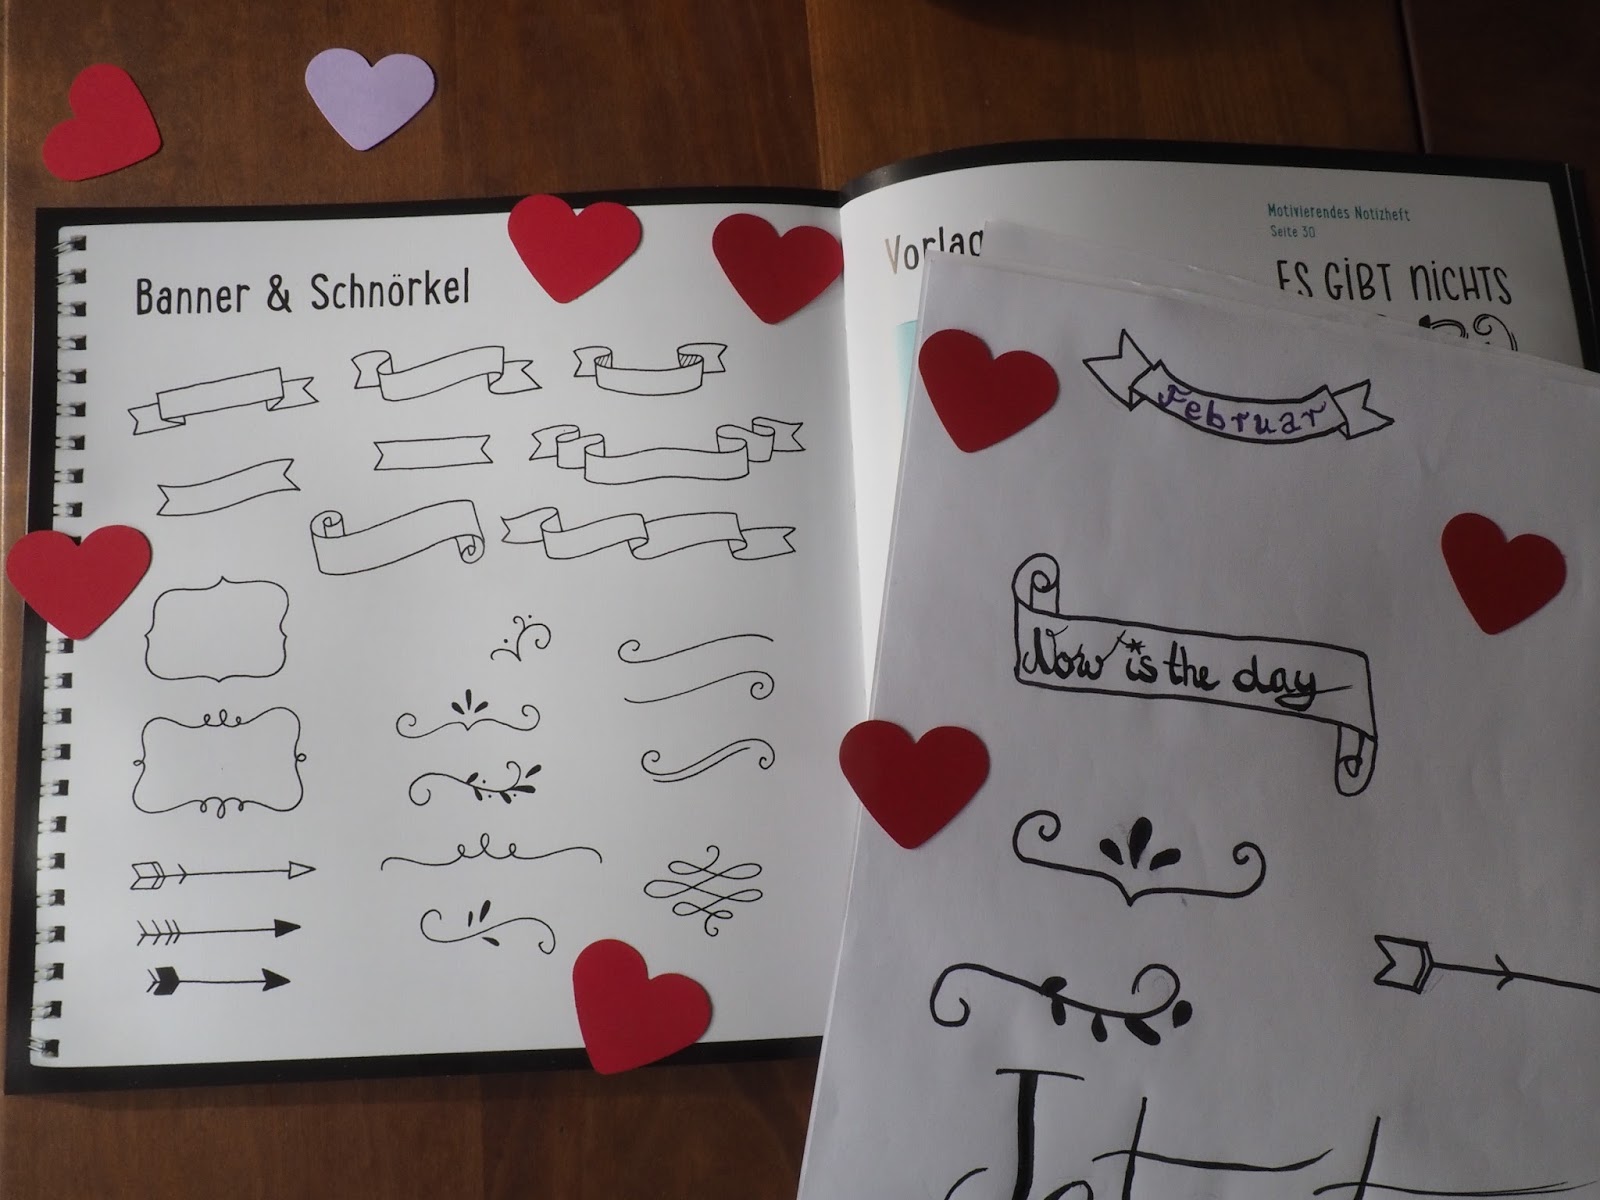 Banner & Schnörkel
Motivierendes Notizheft
Seite 30
ES GIBT NICHTS
Februar
Now is the day